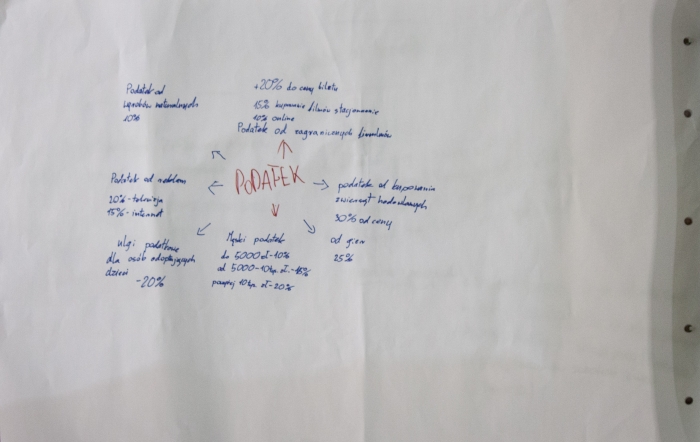 Podatek od
wyrobów naturalnych
10%
+20% do ceny biletu
15% kupowanie filmów stacjonarnie
10% online
Podatek od zagranicznych filmów
Podatek od reklam
20% - telewizja
15% - internet
PODATEK
podatek od kupowania
zwierząt hodowlanych
30% od ceny
od gier
25%
Ulgi podatkowe
dla osób adoptujących
dzieci
-20%
podatek
do 5000 zł - 10%
od 5000 - 10 tyś. zł. - 15%
powyżej 10 tyś. zł - 20%